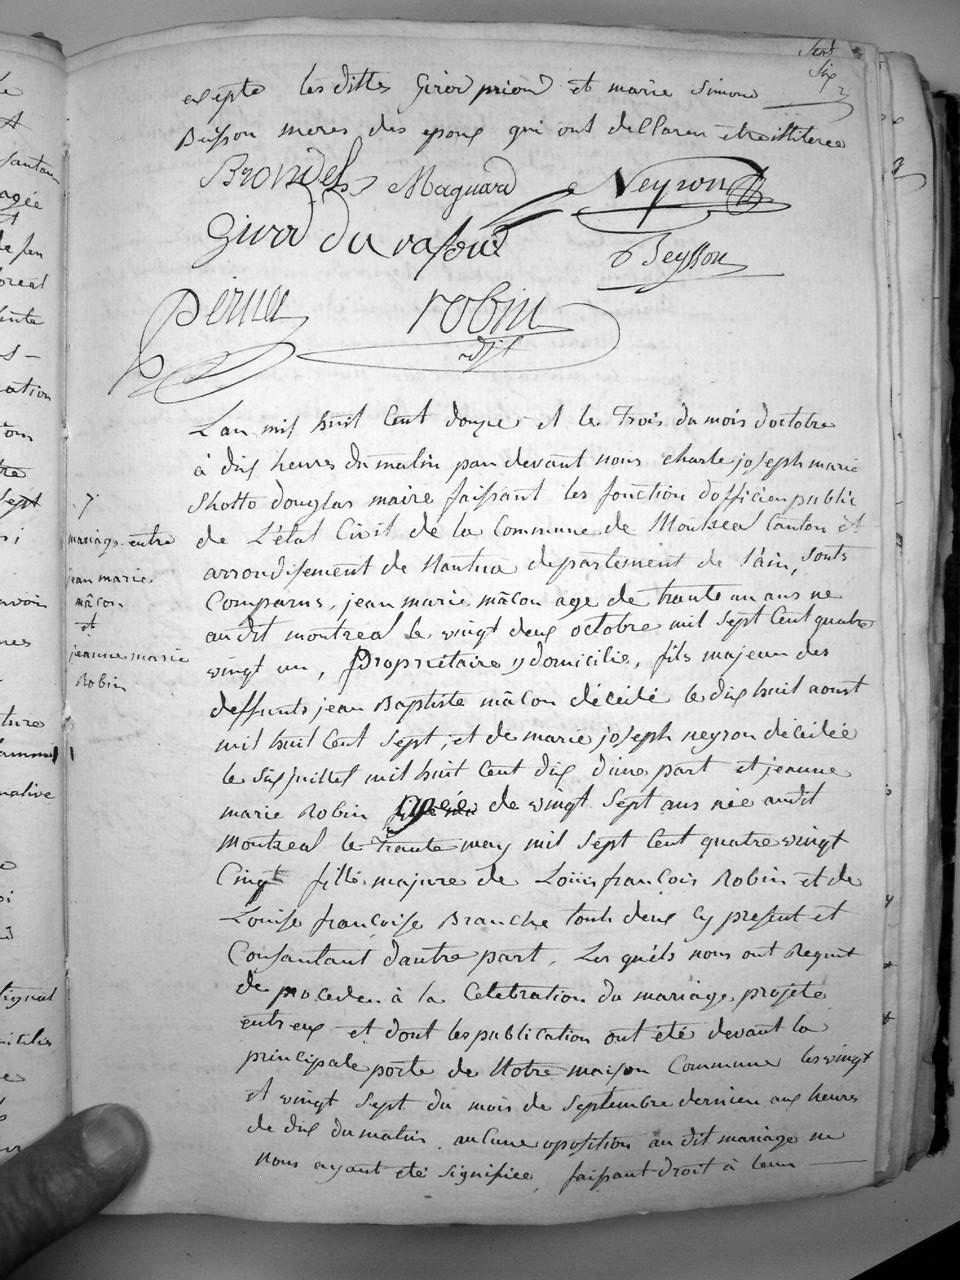 Six
exepte les dittes Girod prion et marie simone
Buisson meres des epoux qui ont dellarer etre illiteree
Brondel Maguard Neyron
Girod du rafour Beysson
Perna robin
adjt
L'an mil huit Cent douze et le trois du mois doctobre
à dix heures du matin par devant nous charle joseph marie
Shotto douglas maire faissant les fonction d'officier public
de L'état Civil de la Commune de Montreal Canton et
arrondisement de Nantua departement de l'ain, sont
Comparus, jean marie mâcon age de trante un ans ne
audit montreal le vingt deux octobre mil sept Cent quatre
vingt un, Proprietaire y domicilie, fils majeur des
deffunts jean Baptiste mâcon décédé le dix huit aoust
mil huit Cent sept, et de marie joseph neyron décédée
le six juillet mil huit Cent dix d'une part et jeanne
marie Robin agée de vingt sept ans née audit
montreal le trante may mil sept Cent quatre vingt
Cinq fille majure de Loüis françois Robin et de
Louise françoise Branche touts deux Cy present et
Consantant d'autre part, Les quéls nous ont Requit
de proceder à la Celebration du mariage projeté
entreux et dont les publication ont été devant la
principale porte de Notre maison Commune les vingt
et vingt sept du mois de Septembre dernier aux heures
de dix du matin, aucune oposition au dit mariage ne
nous ayant été signifiée, faissant droit à leur
7
mariage entre
jean marie
mâcon
et
jeanne marie
Robin